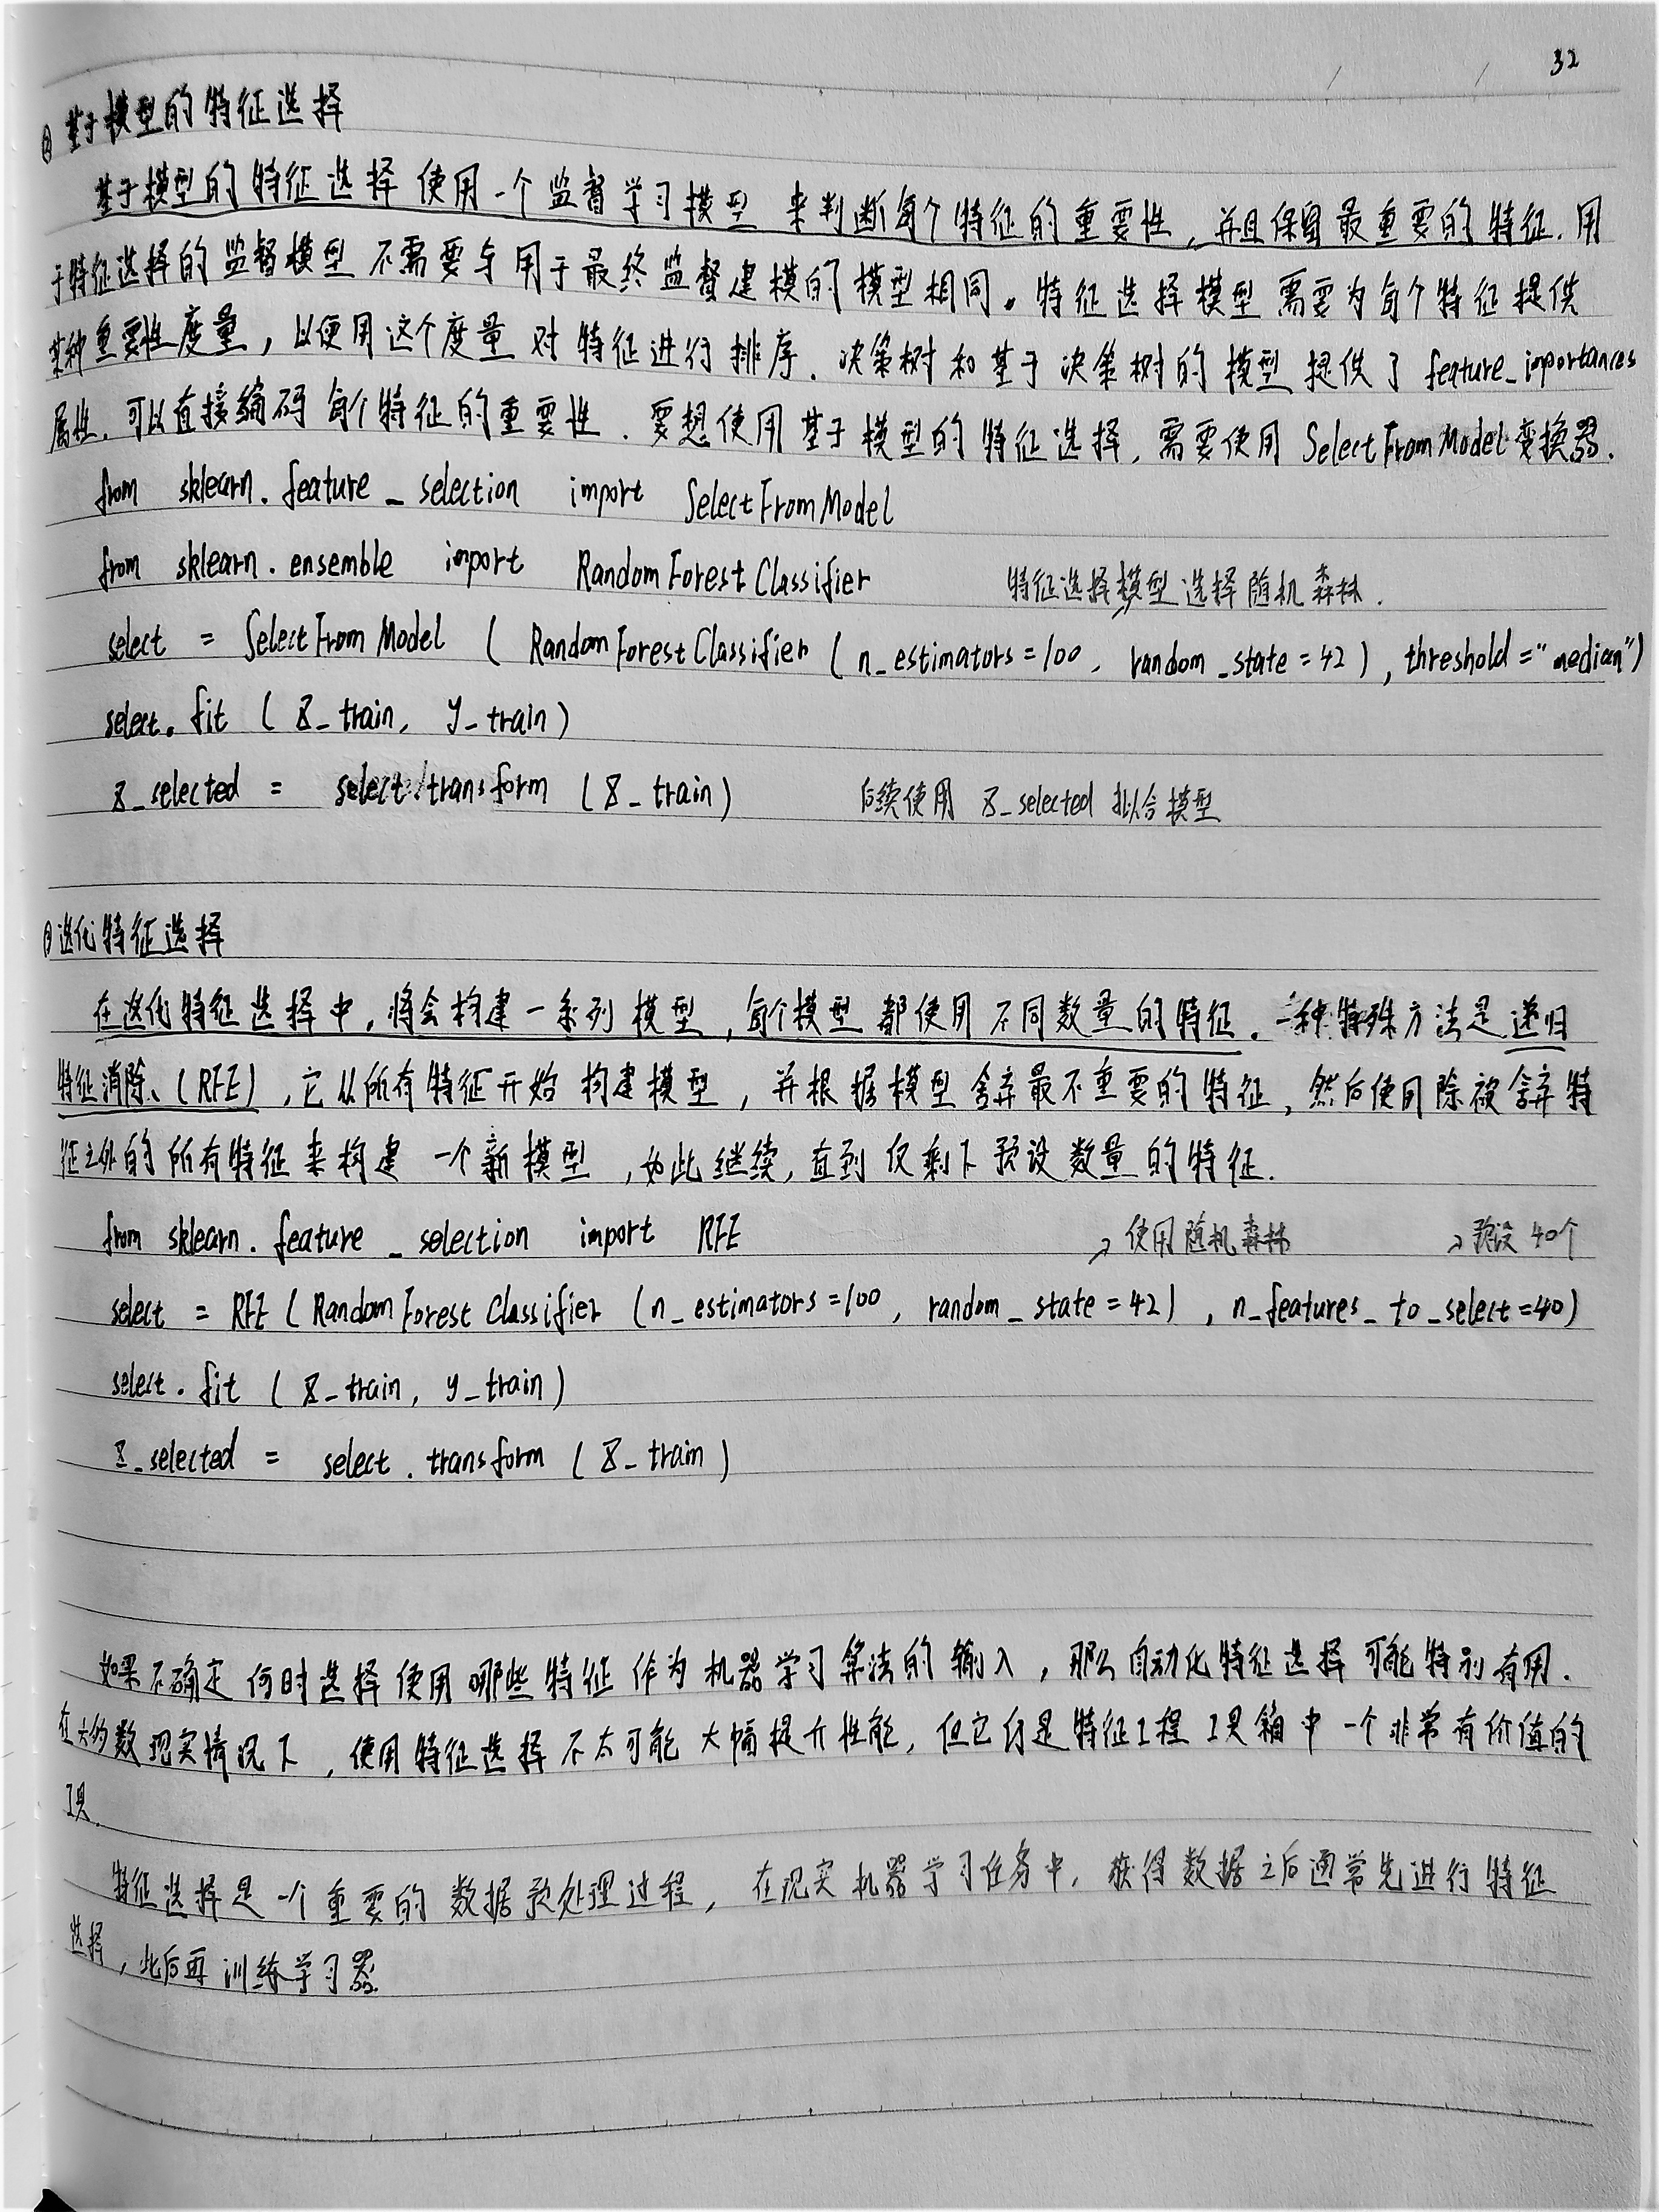 32
② 基于模型的特征选择
基于模型的特征选择使用一个监督学习模型来判断每个特征的重要性，并且保留最重要的特征. 用
于特征选择的监督模型不需要与用于最终监督建模的模型相同。特征选择模型需要为每个特征提供
某种重要性度量，以便用这个度量对特征进行排序. 决策树和基于决策树的模型提供了 feature_importances
属性, 可以直接编码每个特征的重要性. 要想使用基于模型的特征选择, 需要使用 SelectFromModel 变换器.
from sklearn.feature_selection import SelectFromModel
from sklearn.ensemble import RandomForestClassifier 特征选择模型选择随机森林.
select = SelectFromModel (RandomForestClassifier (n_estimators=100, random_state=42), threshold="median")
select.fit (X_train, y_train)
X_selected = select.transform (X_train) 后续使用 X_selected 拟合模型
③ 迭代特征选择
在迭代特征选择中, 将会构建一系列模型, 每个模型都使用不同数量的特征. 一种特殊方法是递归
特征消除、(RFE), 它从所有特征开始构建模型, 并根据模型舍弃最不重要的特征, 然后使用除被舍弃特
征之外的所有特征来构建一个新模型, 如此继续, 直到仅剩下预设数量的特征.
from sklearn.feature_selection import RFE →使用随机森林 →预设40个
select = RFE (RandomForestClassifier (n_estimators=100, random_state=42), n_features_to_select=40)
select.fit (X_train, y_train)
X_selected = select.transform (X_train)
如果不确定何时选择使用哪些特征作为机器学习算法的输入, 那么自动化特征选择可能特别有用.
在大多数现实情况下, 使用特征选择不太可能大幅提升性能, 但它仍是特征工程工具箱中一个非常有价值的
工具.
特征选择是一个重要的数据预处理过程, 在现实机器学习任务中, 获得数据之后通常先进行特征
选择, 此后再训练学习器